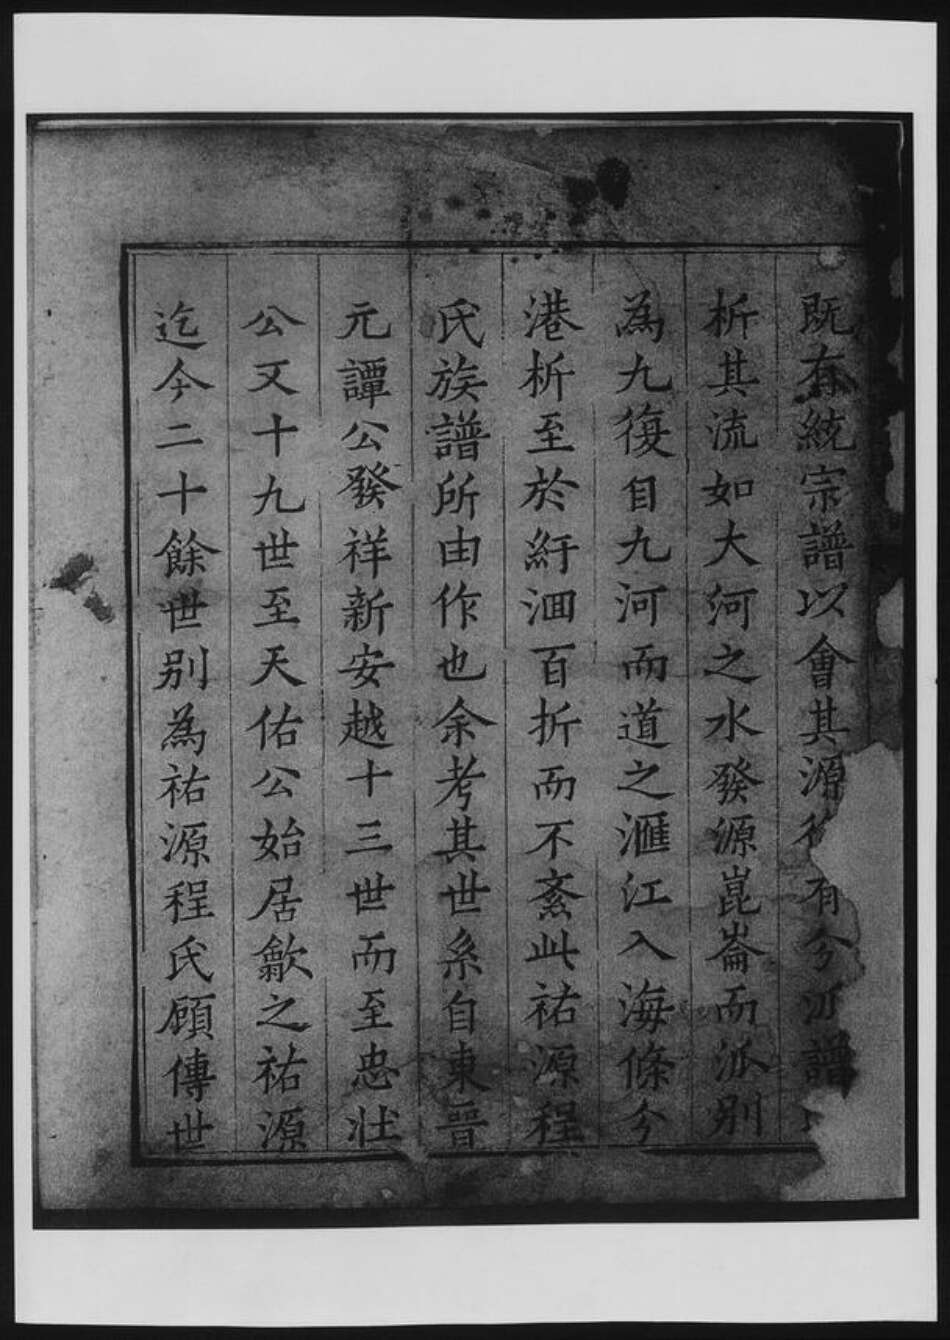 既有統宗譜以會其源有分泒譜
析其流如大河之水發源崑崙而泒別
為九復自九河而道之滙江入海條分
港析至於紆洄百折而不紊此祐源程
氏族譜所由作也余考其世系自東晉
元譚公發祥新安越十三世而至忠壯
公又十九世至天佑公始居歙之祐源
迄今二十餘世別為祐源程氏顧傳世